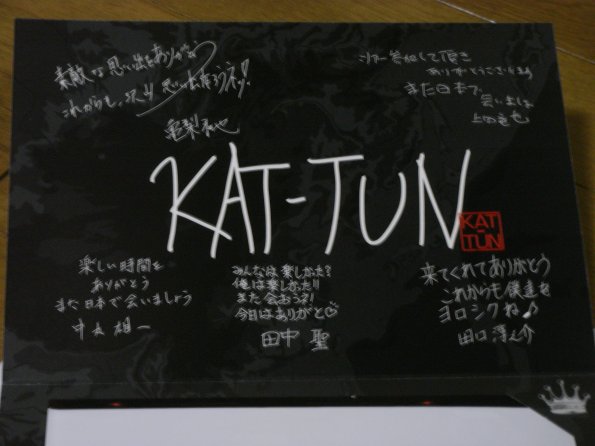 素敵な思い出をありがとう
これからも、沢山思い出作ろうネ!!
亀梨和也
ツアー参加して頂き
ありがとうございます
また日本で
会いましょ
上田竜也
KAT-TUN
KAT
-
TUN
楽しい時間を
ありがとう
また日本で会いましょう
中丸雄一
みんなは楽しかった?
俺は楽しかった!!
また会おうネ!
今日はありがと♡
田中 聖
来てくれてありがとう
これからも僕達を
ヨロシクね♪
田口淳之介